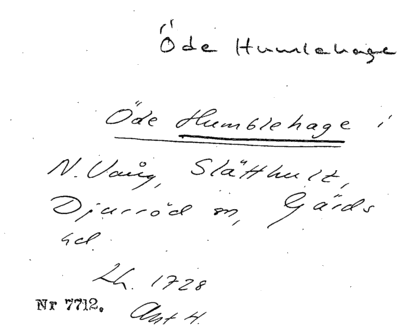 Öde Humlehage
Öde Humblehage i
N. Vång, Slätthult,
Djurröd sn, Gärds
hd.
Lh. 1728
Nr 7712. Akt 4.